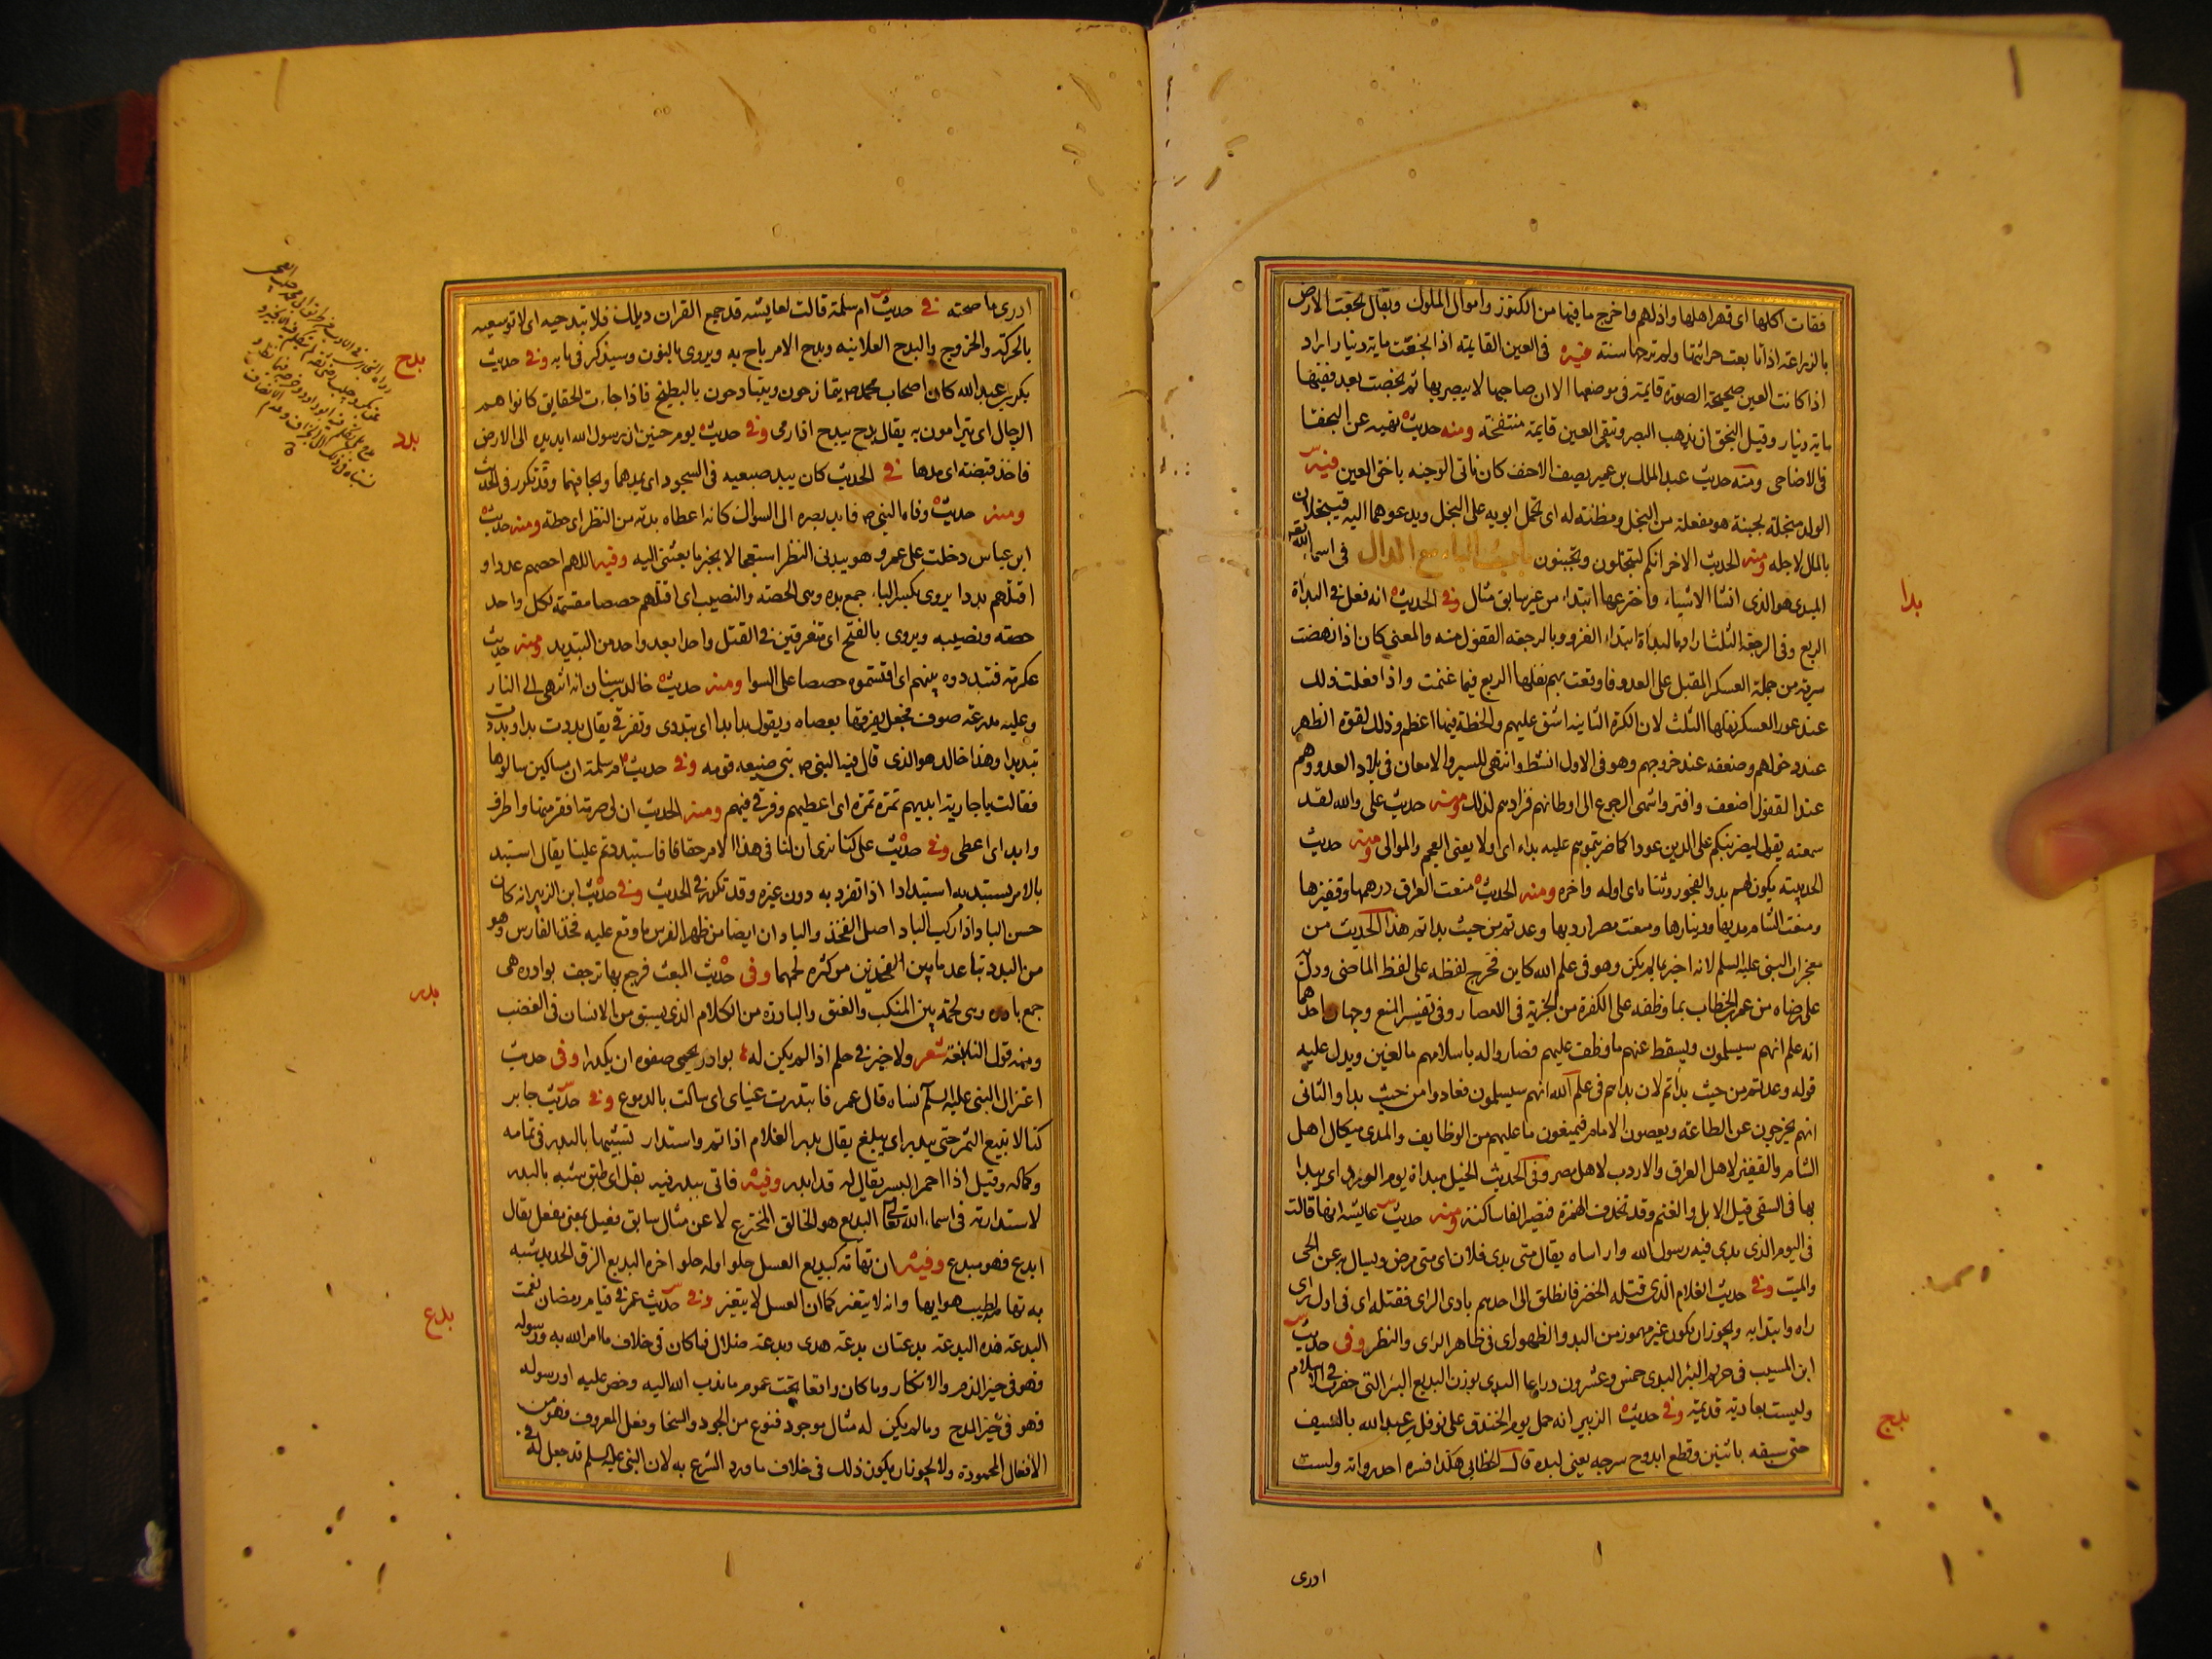 فقات اكلها اى قهر اهلها واذلهم واخرج ما فيها من الكنوز واموال الملوك ويقال بخعت الارض
بالزراعة اذا تابعت حراثتها ولم ترحها سنة فيه فى العين القايمة اذا بخقت ماية دينار اراد
اذا كانت العين صحيحة الصورة قايمة فى موضعها الا ان صاحبها لا يبصر بها ثم بخصت بعد ففيها
ماية دينار وقيل البخق ان يذهب البصر وتبقى العين قايمة منتفخة ومنه حديث نهيه عن البخقا
فى الاضاحى ومنه حديث عبد الملك بن عمير يصف الاحنف كان ناتى الوجنه باخق العين فيه
الولد مبخلة مجبنة هو مفعلة من البخل ومظنة له اى يحمل ابويه على البخل ويدعوهما اليه فيبخلان
بالمال لاجله ومنه الحديث الاخر انكم لتبخلون وتجبنون باب الباء مع الدال فى اسما الله تعالى
المبدى هو الذى انشا الاشياء واخترعها ابتداء من غير سابق مثال وفى الحديث انه نفل فى البدأة
الربع وفى الرجعة الثلث اراد بالبدأة ابتداء الغزو وبالرجعة القفول منه والمعنى كان اذا نهضت
سرية من جملة العسكر المقبل على العدو فاوقعت بهم نفلها الربع فيما غنمت واذا فعلت ذلك
عند عود العسكر نفلها الثلث لان الكرة الثانية اشق عليهم والخطة فيها اعظم وذلك لقوة الظهر
عند دخولهم وضعفه عند خروجهم وهو فى الاول انشط واشهى للسير والامعان فى بلاد العدو وهم
عند القفول اضعف وافتر واشهى للرجوع الى اوطانهم فزادهم لذلك ومنه حديث على والله لقد
سمعته يقول ليضربنكم على الدين عودا كما ضربتموهم عليه بداء اى اولا يعنى العجم والموالى ومنه حديث
الحديبية يكون لهم بدو الفجور وثناه اى اوله واخره ومنه الحديث منعت العراق درهمها وقفيزها
ومنعت الشام مديها ودينارها ومنعت مصر اردبها وعدتم من حيث بداتم هذا الحديث من
معجزات النبى عليه السلم لانه اخبر بما لم يكن وهو فى علم الله كاين فخرج لفظه على لفظ الماضى ودل به
على رضاه من عمر بن الخطاب بما وظفه على الكفرة من الجزية فى الامصار وفى تفسير المنع وجهان احدهما
انه علم انهم سيسلمون ويسقط عنهم ما وظف عليهم فصاروا له باسلامهم مانعين ويدل عليه
قوله وعدتم من حيث بداتم لان بداهم فى علم الله انهم سيسلمون فعادوا من حيث بداو والثانى
انهم يخرجون عن الطاعة ويعصون الامام فيمنعون ما عليهم من الوظايف والمدى مكيال اهل
الشام والقفيز لاهل العراق والاردب لاهل مصر وفى الحديث الخيل مبداة يوم الورد اى يبدا
بها فى السقى قبل الابل والغنم وقد تحذف الهمزة فتصير الفا ساكنة ومنه حديث عايشه انها قالت
فى اليوم الذى بدى فيه رسول الله وا راساه يقال متى بدى فلان اى متى مرض ويسال به عن الحى
والميت وفى حديث الغلام الذى قتله الخضر فانطلق الى احدهم بادى الراى فقتله اى فى اول راى
راه وابتدا به ويجوز ان يكون غير مهموز من البدو الظهور اى فى ظاهر الراى والنظر وفى حديث
ابن المسيب فى حريم البئر البدى خمس وعشرون ذراعا البدى بوزن البديع البئر التى حفرت فى الاسلام
وليست بعادية قديمة وفى حديث الزبير انه حمل يوم الخندق على نوفل بن عبد الله بالسيف
حتى سبقه باثنين وقطع ابدوح سرجه يعنى لبده قال الخطابى هكذا فسره احد رواته ولست
بدا
بدج
ادرى
ادرى ما صحته فى حديث ام سلمة قالت لعايشه قد جمع القران ذيلك فلا تبدحيه اى لا توسعيه
بالحركة والخروج والبدح العلانيه وبدح الامر باح به ويروى بالنون وسيذكر فى بابه وفى حديث
بكر بن عبد الله كان اصحاب محمد ص يتمازحون ويتبادحون بالبطيخ فاذا جاءت الحقايق كانوا هم
الرجال اى يترامون به يقال بدح يبدح اذا رمى وفى حديث يوم حنين ان رسول الله ابد يده الى الارض
فاخذ قبضة اى مدها فى الحديث كان يبد ضبعيه فى السجود اى يمدهما ويجافيهما وقد تكرر فى الحديث
ومنه حديث وفاة النبى ص فابد بصره الى السواك كانه اعطاه بدته من النظر اى حظه ومنه حديث
ابن عباس دخلت على عمر وهو يبدنى النظر استعجالا بخبر ما بعثنى اليه وفيه اللهم احصهم عددا و
اقتلهم بددا يروى بكسر الباء جمع بدة وهى الحصة والنصيب اى اقتلهم حصصا مقسمة لكل واحد
حصته ونصيبه ويروى بالفتح اى متفرقين فى القتل واحدا بعد واحد من التبديد ومنه حديث
عكرمة فتبددوه بينهم اى اقتسموه حصصا على السوا ومنه حديث خالد بن سنان انه انتهى الى النار
وعليه مدرعة صوف فجعل يفرقها بعصاه ويقول بدا بدا اى تبددى وتفرقى يقال بددت بدا وبددت
تبديدا وهذا خالد هو الذى قال فيه النبى ص نبى ضيعه قومه وفى حديث ام سلمة ان مساكين سالوها
فقالت يا جارية ابديهم تمرة تمرة اى اعطيهم وفرقى فيهم ومنه الحديث ان لى صرمة افقر منها واطرق
وابد اى اعطى وفى حديث على كنا نرى ان لنا فى هذا الامر حقا فاستبددتم علينا يقال استبد
بالامر يستبد به استبدادا اذا تفرد به دون غيره وقد تكرر فى الحديث وفى حديث ابن الزبير انه كان
حسن الباد اذا ركب الباد اصل الفخذ والبادان ايضا من ظهر الفرس ما وقع عليه فخذ الفارس وهو
من البدد تباعد ما بين الفخذين من كثرة لحمهما وفى حديث المبعث فرجع بها ترجف بوادره هى
جمع بادره وهى لحمة بين المنكب والعنق والبادرة من الكلام الذى يسبق من الانسان فى الغضب
ومنه قول النابغة شعر ولا خير فى حلم اذا لم يكن له بوادر تحمى صفوه ان يكدرا وفى حديث
اعتزال النبى عليه السلم نساه قال عمر فابتدرت عيناى اى سالت بالدموع وفى حديث جابر
كنا لا نبيع الثمر حتى يبدر اى يبلغ يقال بدر الغلام اذا تم واستدار تشبيها بالبدر فى تمامه
وكماله وقيل اذا احمر البسر يقال له قد ابدر وفيه فاتى ببدر فيه بقل اى طبق شبه بالبدر
لاستدارته فى اسماء الله تعالى البديع هو الخالق المخترع لا عن مثال سابق فعيل بمعنى مفعل يقال
ابدع فهو مبدع وفيه ان تهامة كبديع العسل حلو اوله حلو اخره البديع الزق الجديد شبه
به تهامة لطيب هوايها وانه لا يتغير كما ان العسل لا يتغير وفى حديث عمر فى قيام رمضان نعمت
البدعة هذه البدعة بدعتان بدعة هدى وبدعة ضلال فما كان فى خلاف ما امر الله به ورسوله
فهو فى حيز الذم والانكار وما كان واقعا تحت عموم ما ندب الله اليه وحض عليه او رسوله
فهو فى حيز المدح وما لم يكن له مثال موجود فنوع من الجود والسخا وفعل المعروف فهو من
الافعال المحمودة ولا يجوز ان يكون ذلك فى خلاف ما ورد الشرع به لان النبى عليه السلم قد جعل له فى
بدح
بدد
بدر
بدع